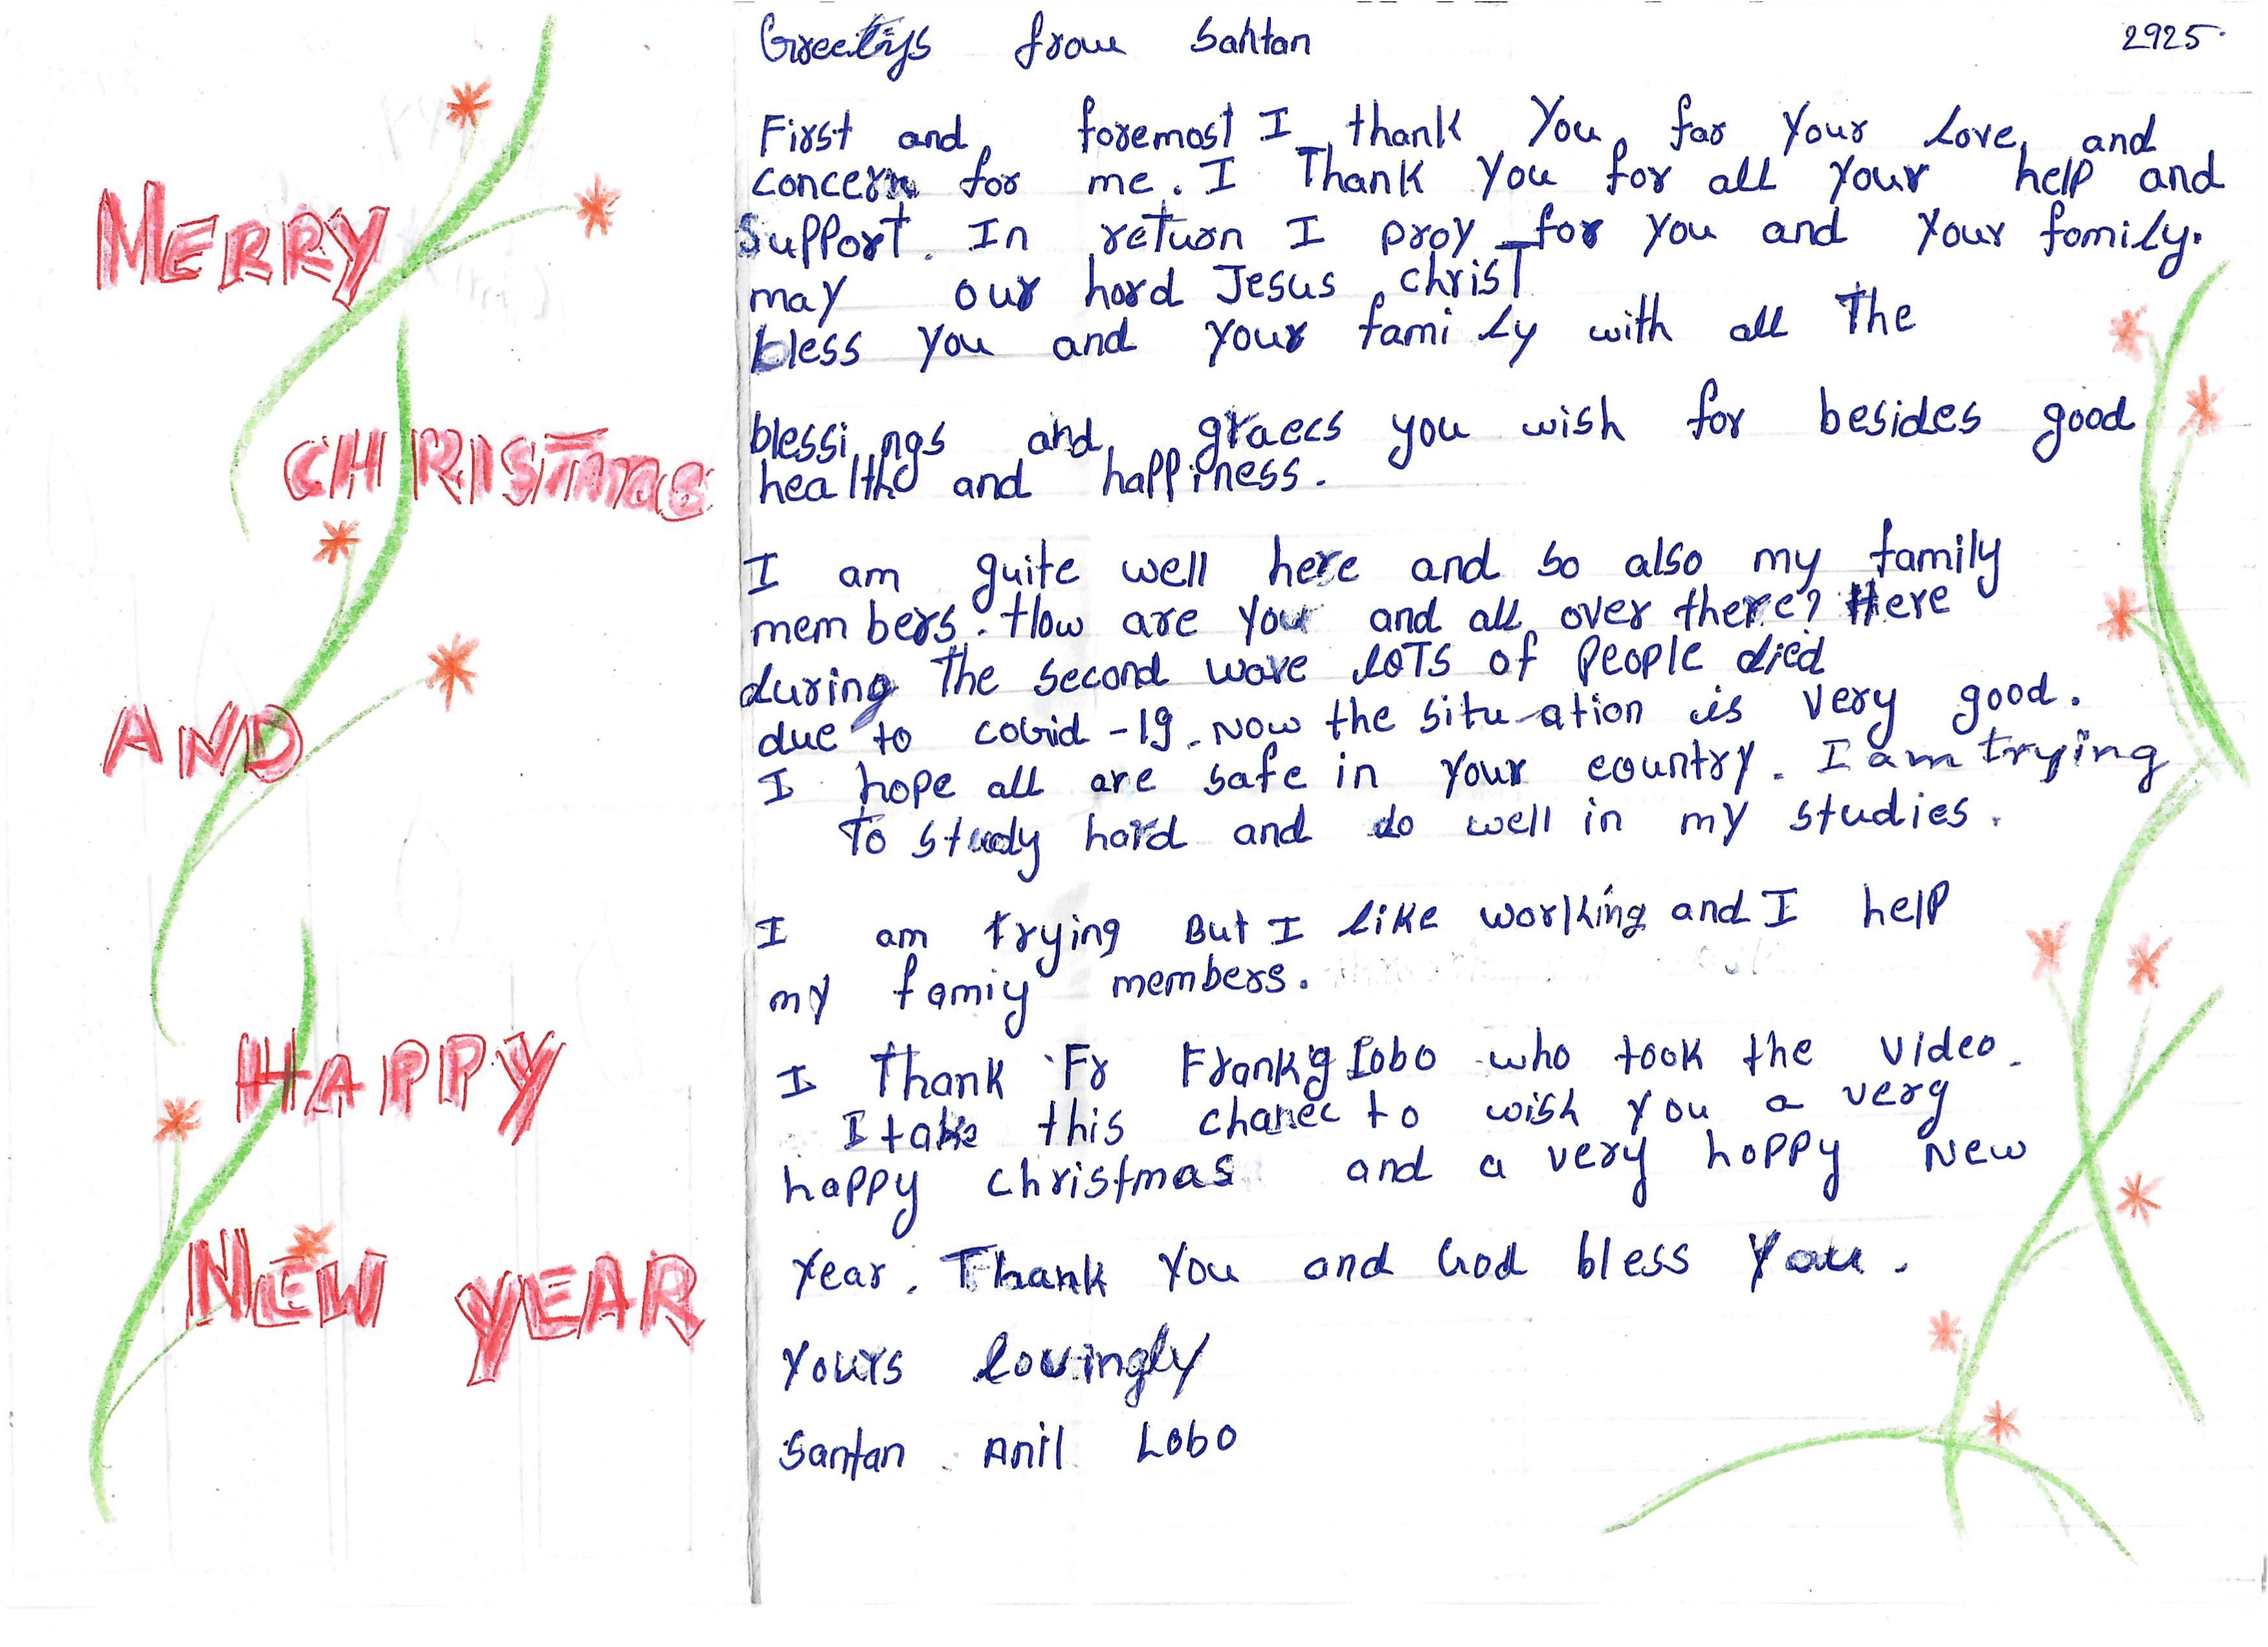 MERRY
CHRISTmas
AND
HAPPY
NEW YEAR
Greetigs from Santan
2925
First and foremost I thank you for your Love and
concern for me. I Thank you for all your help and
Support. In return I pray for you and your family.
may our hord Jesus christ
bless you and your family with all The
blessings and graecs you wish for besides good
health and happiness.
I am quite well here and so also my family
members. How are you and all over there? Here
during The second wave LOTS of People died
due to covid -19. Now the situ-ation is very good.
I hope all are safe in your country. I am trying
To study hard and do well in my studies.
I am trying But I like working and I help
my famiy members.
I Thank Fr Franky Lobo who took the video.
I take this chanec to wish you a very
happy christmas and a very happy New
year. Thank you and God bless you.
yours lovingly
Santan Anil Lobo